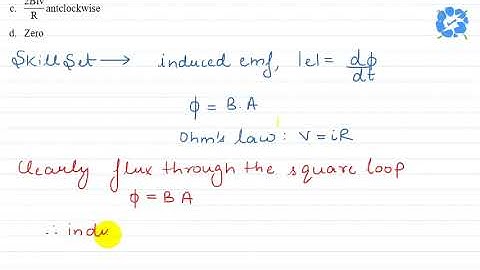 c. 2Blv/R antclockwise
d. Zero
Skill Set → induced emf, |e| = dϕ/dt
ϕ = B.A
Ohm's law: V = iR
Clearly flux through the square loop
ϕ = B A
∴ indu